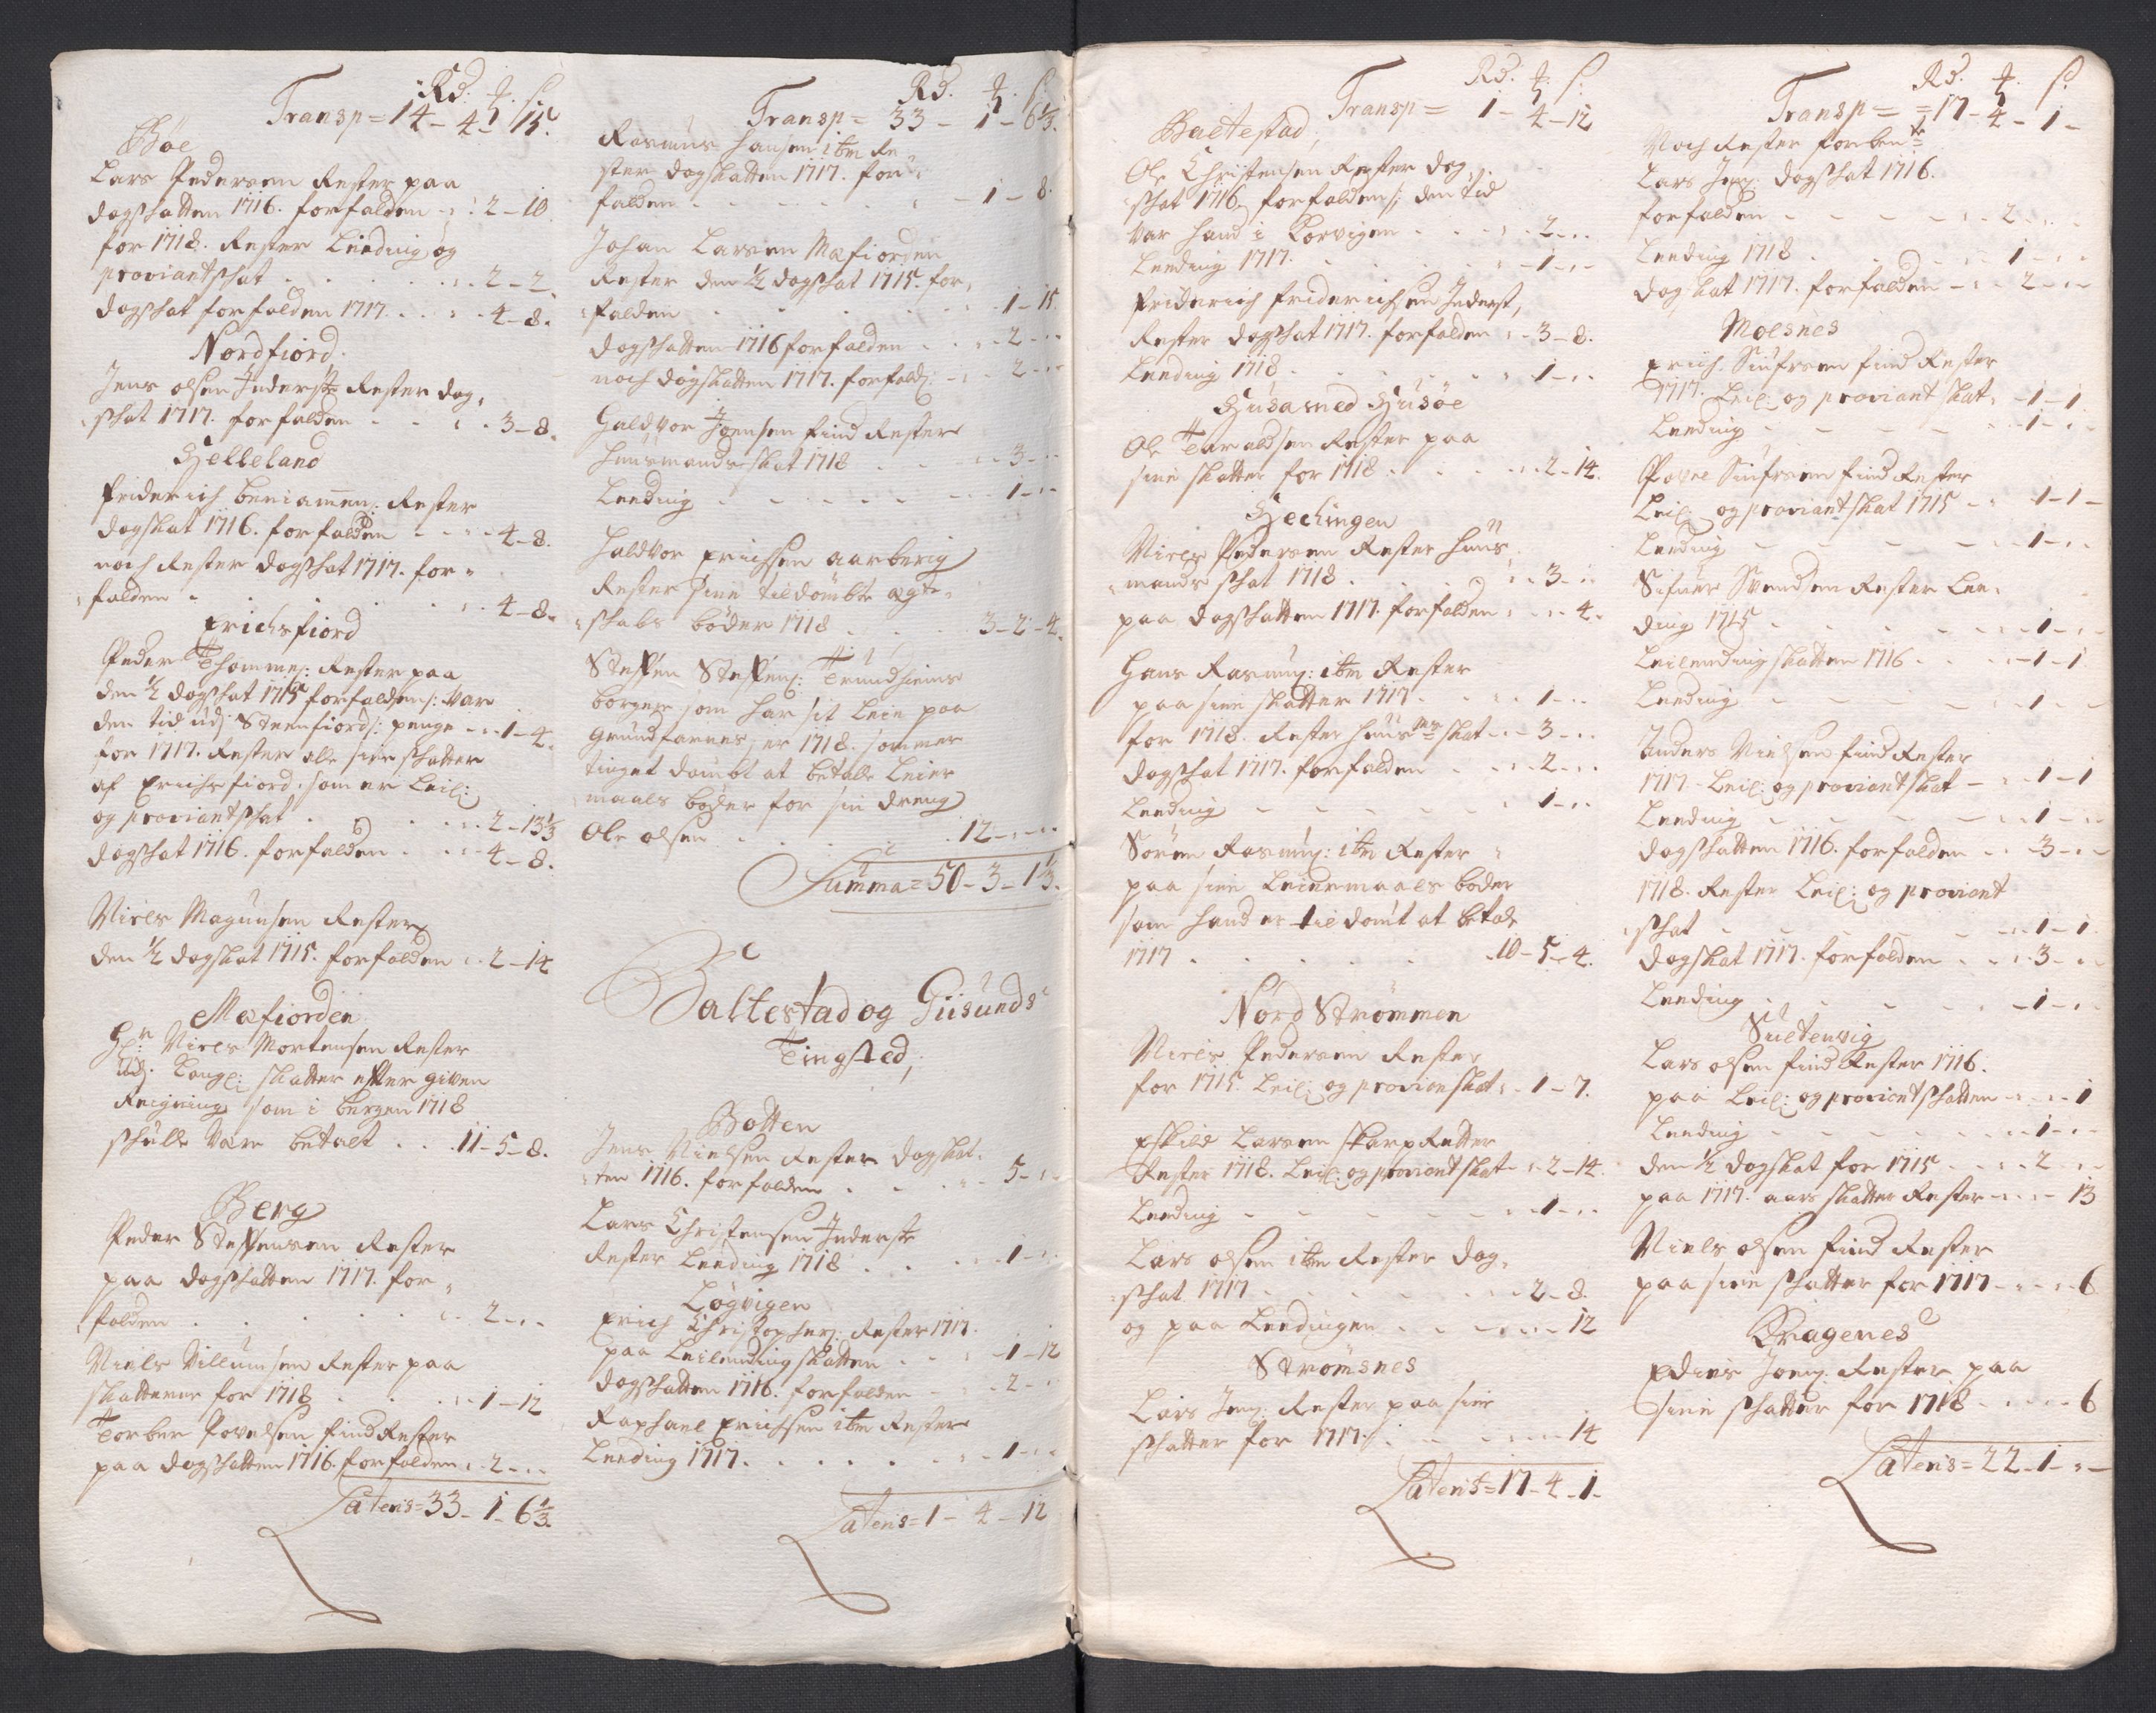 Rd. ꝉ. s.
Transp = 14 - 4 - 15.
Bøe
Lars Pedersen Rester paa
dagskatten 1716. forfalden - : 2 - 10.
for 1718. Rester Leeding og
proviantskat . . . . . 2 - 2.
dagskat forfalden 1717. . . : . 4 - 8.
Nordfiord.
Jens olsen Inderste Rester dag,
skat 1717. forfalden . . . . 3 - 8.
Helleland
friderich beniamen: Rester
dagskat 1716. forfalden - - - - 4 - 8.
noch Rester dagskat 1717. for=
falden - . . . . . . 4 - 8.
Erichsfiord
Peder Thommes: Rester paa
den ½ dagskat 1715 forfalden /: var
den tid udj Steenfiord :/ penge - - 1 - 4.
for 1717. Rester alle sine skatter
af Erichsfiord, som er Leil:
og proviantskat . . . . . 2 - 13⅓
dagskat 1716. forfalden . . . 4 - 8.
Niels Magunsen Rester
den ½ dagskat 1715. forfalden . . 2 - 14
Mefiorden
Hr. Niels Mortensen Rester
udj Kongl: skatter efter given
Reigning som i bergen 1718
skulle være betalt . . . 11 - 5 - 8.
Berg
Peder Steffensen Rester
paa dagskatten 1717. for=
falden . . . . . . 2 - . .
Niels Villumsen Rester paa
skatterne for 1718 . . . . 1 - 12
Torber Povelsen find Rester
paa dagskatten 1716. forfalden . . 2 - . .
Lateris = 33 - 1 - 6⅓.
Rd. ꝉ. s.
Transp = 33 - 1 - 6⅓.
Rasmus hansen itm Re
ster dagskatten 1717. for=
falden - - - - - - - 1 - 8.
Johan Larsen Mefiorden
Rester den ½ dagskat 1715. for,
falden . . . . . . . 1 - 15.
dagskatten 1716 forfalden . . . 2 - . .
noch dagskatten 1717. forfald: - . . 2 - . .
Haldvor Joensen find Rester
huusmands skat 1718 . . . . 3 - . .
Leeding - - - - - - - 1 - . .
haldvor Erichsen Aarberig
Rester sine tildömbte ægte=
skabs böder 1718 . . . . 3 - 2 - 4.
Steffen Steffens: Trundhiems
borger som har sit Leie paa
Grundfarnes, er 1718. sommer
tinget dömbt at betale Leier
maals böder for sin dreng
Ole olsen . . . . . . 12 - . . .
Summa = 50 - 3 - 1⅓.
Baltestad og Giisunds
Tingsted,
Botten
Jens Nielsen Rester dagskat=
ten 1716. forfalden . . . . 5 - . .
Lars Christensen Inderste
Rester Leeding 1718 . . . . 1 - . .
Løgvigen
Erich Christophers: Rester 1717.
paa Leilending skatten . . . - 1 - 12
dagskatten 1716. forfalden - . . 2 - . .
Raphael Erichsen itm Rester
Leeding 1717. . . . . . . 1 - . .
Lateris = 1 - 4 - 12
Rd. ꝉ. s.
Transp = 1 - 4 - 12
Baltestad,
Ole Christensen Rester dag,
skat 1716 forfalden /: den tid
var hand i Korvigen . . . . 2 - . .
Leeding 1717. . . . . . . - 1 - . .
friderich friderichsen Inderst,
Rester dagskat 1717. forfalden . - 3 - 8.
Leeding 1718 . . . . . . 1 - . .
Husa med Husøe
Ole Taraldsen Rester paa
sine skatter for 1718 . . . . . 2 - 14.
Hechingen
Niels Pedersen Rester huus,
mands skat 1718. . . . . . 3 - . .
paa dagskatten 1717. forfalden . . . 4.
Hans Rasmus: itm Rester
paa sine skatter 1717. . . . . 1 - . .
for 1718. Rester huusms skat - . . 3 - . .
dagskat 1717. forfalden . . . . 2 - . .
Leeding - - - - - - 1 - . .
Sören Rasmus: itm Rester
paa sine Leiermaals böder
som hand er tildömt at betale
1717 . . . . . . . 10 - 5 - 4.
Nord Strömmen
Niels Pedersen Rester
for 1715. Leil: og provienskat . - 1 - 7.
Eskild Larsen skarpRetter
Rester 1718. Leil: og proviantskat - . 2 - 14.
Leeding - - - - - - - . 1 - . .
Lars olsen itm Rester dag,
skat 1717 . . . . . . . 2 - 8.
og paa Leedingen . . - . . - 12
Strömsnes
Lars Jens: Rester paa sine
skatter for 1717. . . . . . . 14
Lateris = 17 - 4 - 1 -
Rd. ꝉ. s.
Transp = 17 - 4 - 1 -
Noch Rester forbente
Lars Jens: dagskat 1716.
forfalden - - - - - . . 2 - . .
Leeding 1718 . . . . . . 1 - . .
dagskat 1717. forfalden - . . 2 - . .
Moesnes
Erich Siufrsen find Rester
1717. Leil: og proviant skat . - 1 - 1.
Leeding - - - - - - - 1 - . .
Povel Siufrsen find Rester
Leil: og proviantskat 1715 - . 1 - 1 -
Leeding - - - - - - . 1 - . .
Sifuer Svendsen Rester Lee=
ding 1715 - . . . . - . . 1 - . .
Leilendingskatten 1716 . . . - 1 - 1
Leeding - - - - - - - 1 - . .
Anders Nielsen find Rester
1717 - Leil: og proviantskat - . . 1 - 1
Leeding - - - - - - . 1 - . .
dagskatten 1716. forfalden . . . 3 - . .
1718. Rester Leil: og proviant
skat - - - - - - - . . 1 - 1.
dagskat 1717. forfalden . . . . 3 - . .
Leeding - - - - - . . - 1 - . .
Sultenvig
Lars olsen find Rester 1716.
paa Leil: og proviantskatten - . . . 1
Leeding - - - - - - - . 1 - . .
den ½ dagskat for 1715 - . . . 2 - . .
paa 1717. aars skatter Rester - . . - 13
Niels olsen find Rester
paa sine skatter for 1717 - . . - 6
Kragenes
Edvin Joens: Rester paa
sine skatter for 1718 - . . . 6
Lateris = 22 - 1 - . -